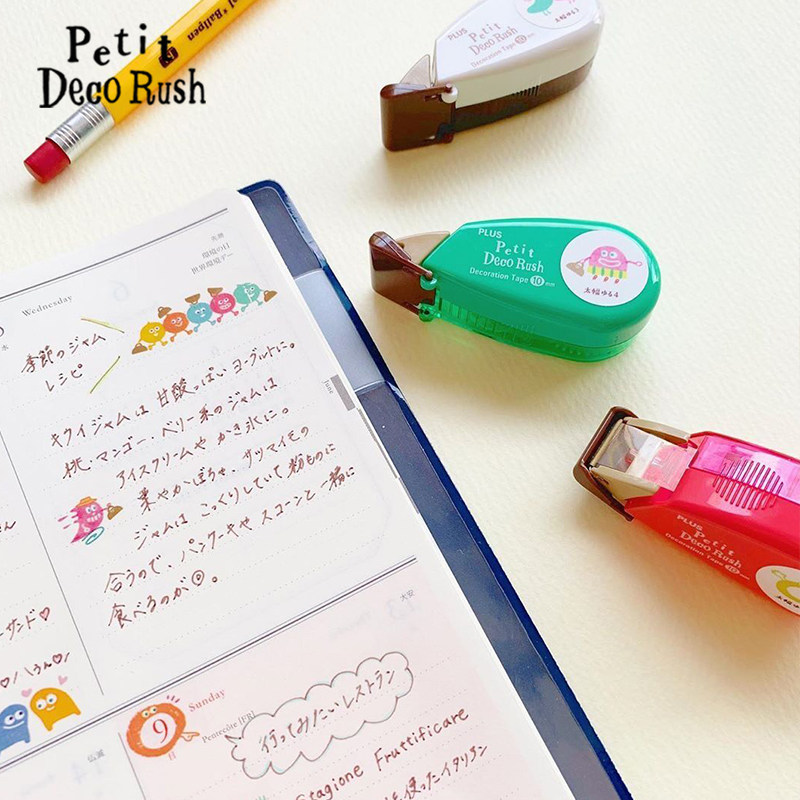 Petit
Deco Rush
Ballpen
PLUS
Petit
Deco Rush
Decoration Tape 10 mm
PLUS
Petit
Deco Rush
Decoration Tape 10 mm
太幅ゆるみ
PLUS
Petit
Deco Rush
Decoration Tape 10 mm
Wednesday
水
先勝
環境の日
世界環境デー
June
季節のジャム
レシピ
キウイジャムは 甘酸っぱい ヨーグルトに。
桃、マンゴー、ベリー系の ジャムは
アイスクリームや かき氷に。
栗やかぼちゃ、サツマイモの
ジャムは こっくりしていて 粉ものに
合うので、パンケーキや スコーンと一緒に
食べるのが◎。
大安
サンド♡
うん♡
仏滅
9
日
Sunday
Pentecôte [FR]
行ってみたいレストラン
Stagione Fruttificare
を使ったイタリアン